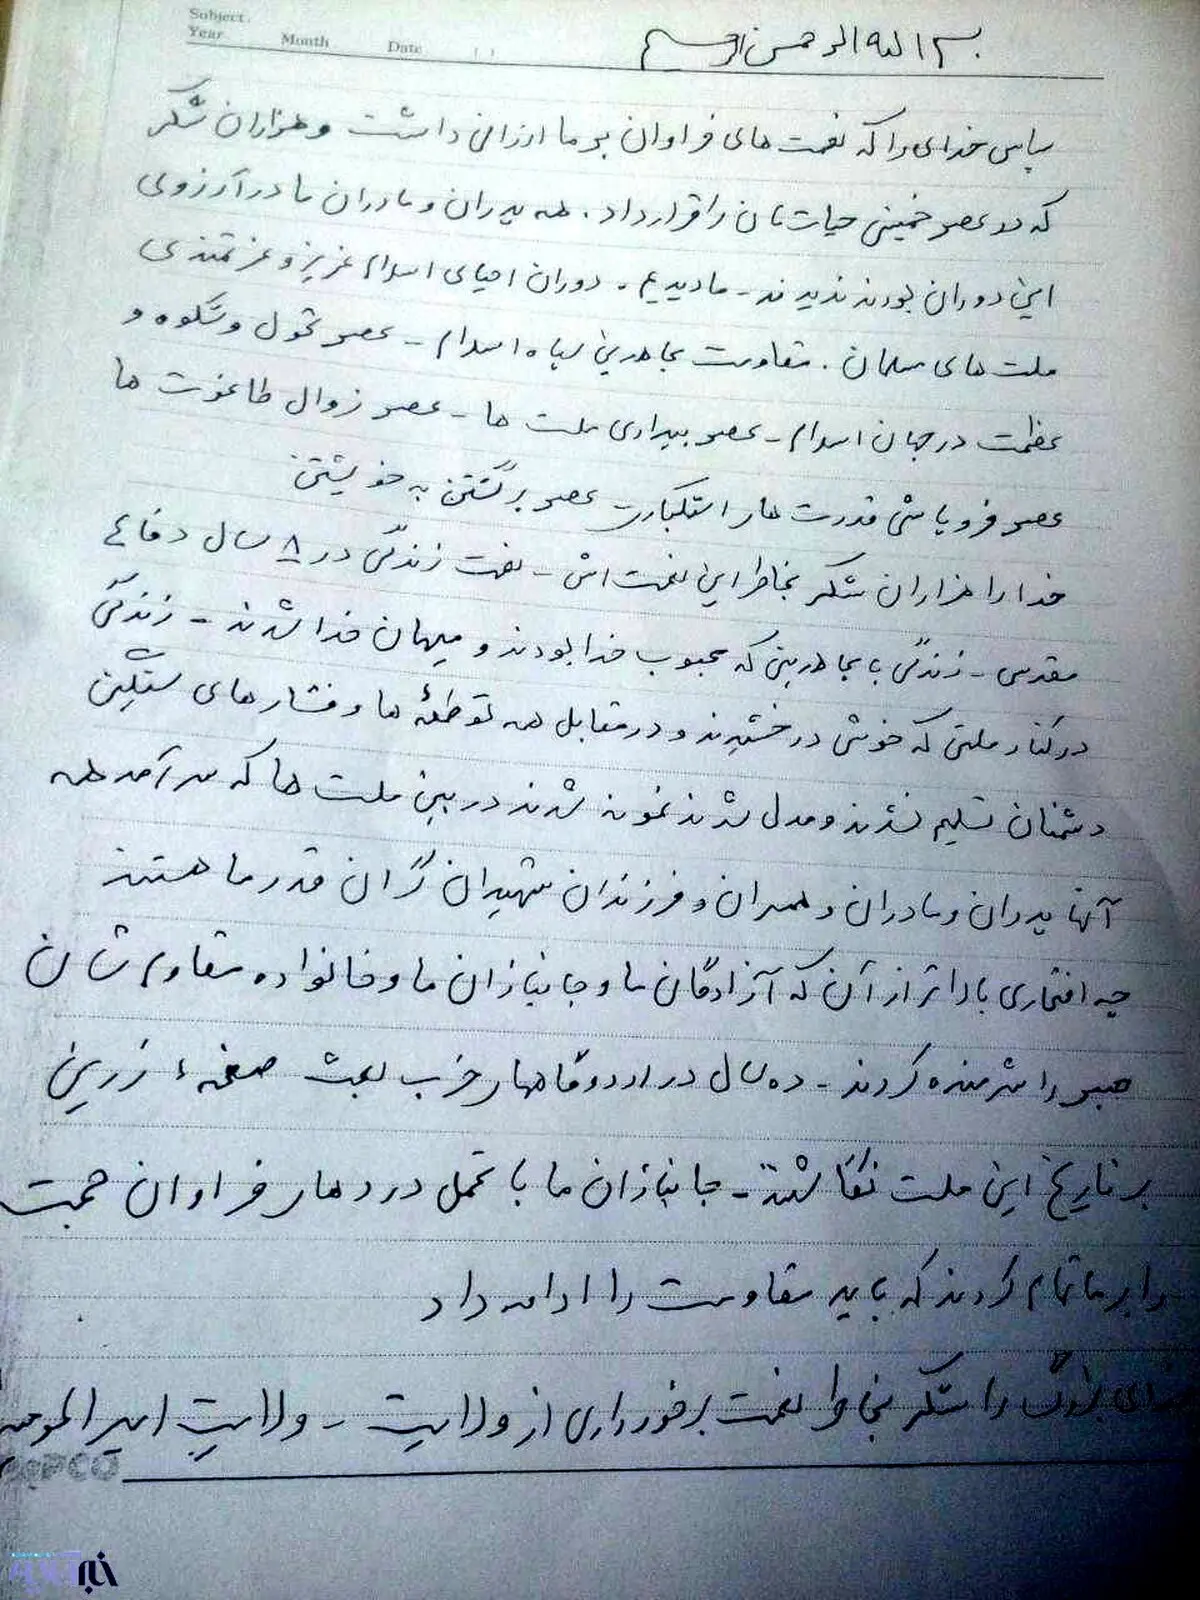 Subject.
Year Month Date ( )
بسم الله الرحمن الرحیم
سپاس خدای را که نعمت های فراوان بر ما ارزانی داشت و هزاران شکر
که در عصر خمینی حیات مان را قرار داد. همه پدران و مادران ما در آرزوی
این دوران بودند ندیدند - ما دیدیم. دوران احیای اسلام عزیز و عزتمندی
ملت های مسلمان. مقاومت مجاهدین سپاه اسلام - عصر تحول و شکوه و
عظمت در جهان اسلام - عصر بیداری ملت ها - عصر زوال طاغوت ها
عصر فروپاشی قدرت های استکباری عصر برگشتن به خویشتن
خدا را هزاران شکر بخاطر این نعمت اش - نعمت زندگی در ۸ سال دفاع
مقدس - زندگی با مجاهدینی که محبوب خدا بودند و میهمان خدا شدند - زندگی
در کنار ملتی که خوش درخشیدند و در مقابل همه توطئه ها و فشارهای سنگین
دشمنان تسلیم نشدند و مدل شدند نمونه شدند در بین ملت ها که سرآمد همه
آنها پدران و مادران و همسران و فرزندان شهیدان گران قدر ما هستند
چه افتخاری بالاتر از آن که آزادگان ما و جانبازان ما و خانواده مقاوم شان
صبر را شرمنده کردند - ده سال در اردوگاههای حزب بعث صفحهء زرین
بر تاریخ این ملت نگاشتند - جانبازان ما با تحمل دردهای فراوان حجت
را بر ما تمام کردند که باید مقاومت را ادامه داد
خدای بزرگ را شکر بخاطر نعمت برخورداری از ولایت - ولایت امیر المومنین
PCO
خبر